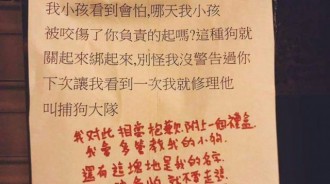 我小孩看到會怕,哪天我小孩
被咬傷了你負責的起嗎?這種狗就
關起來綁起來,別怪我沒警告過你
下次讓我看到一次我就修理他
叫捕狗大隊
我對此相當抱歉,附上一個禮盒
我會多管教我的小狗
還有這塊地是我的
就不要走